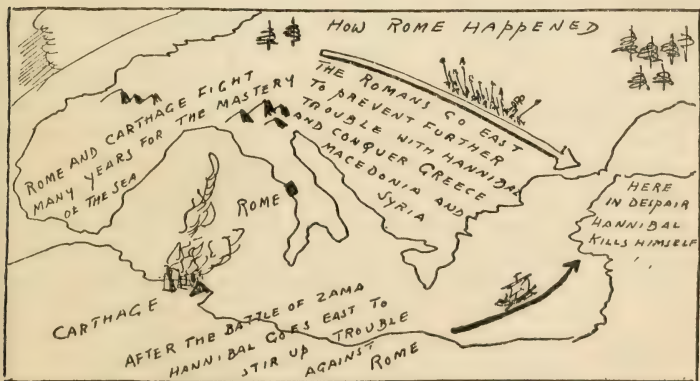 HOW ROME HAPPENED
ROME AND CARTHAGE FIGHT
MANY YEARS FOR THE MASTERY
OF THE SEA
THE ROMANS GO EAST
TO PREVENT FURTHER
TROUBLE WITH HANNIBAL
AND CONQUER GREECE
MACEDONIA AND
SYRIA
ROME
HERE
IN DESPAIR
HANNIBAL
KILLS HIMSELF
CARTHAGE
AFTER THE BATTLE OF ZAMA
HANNIBAL GOES EAST TO
STIR UP TROUBLE
AGAINST
ROME